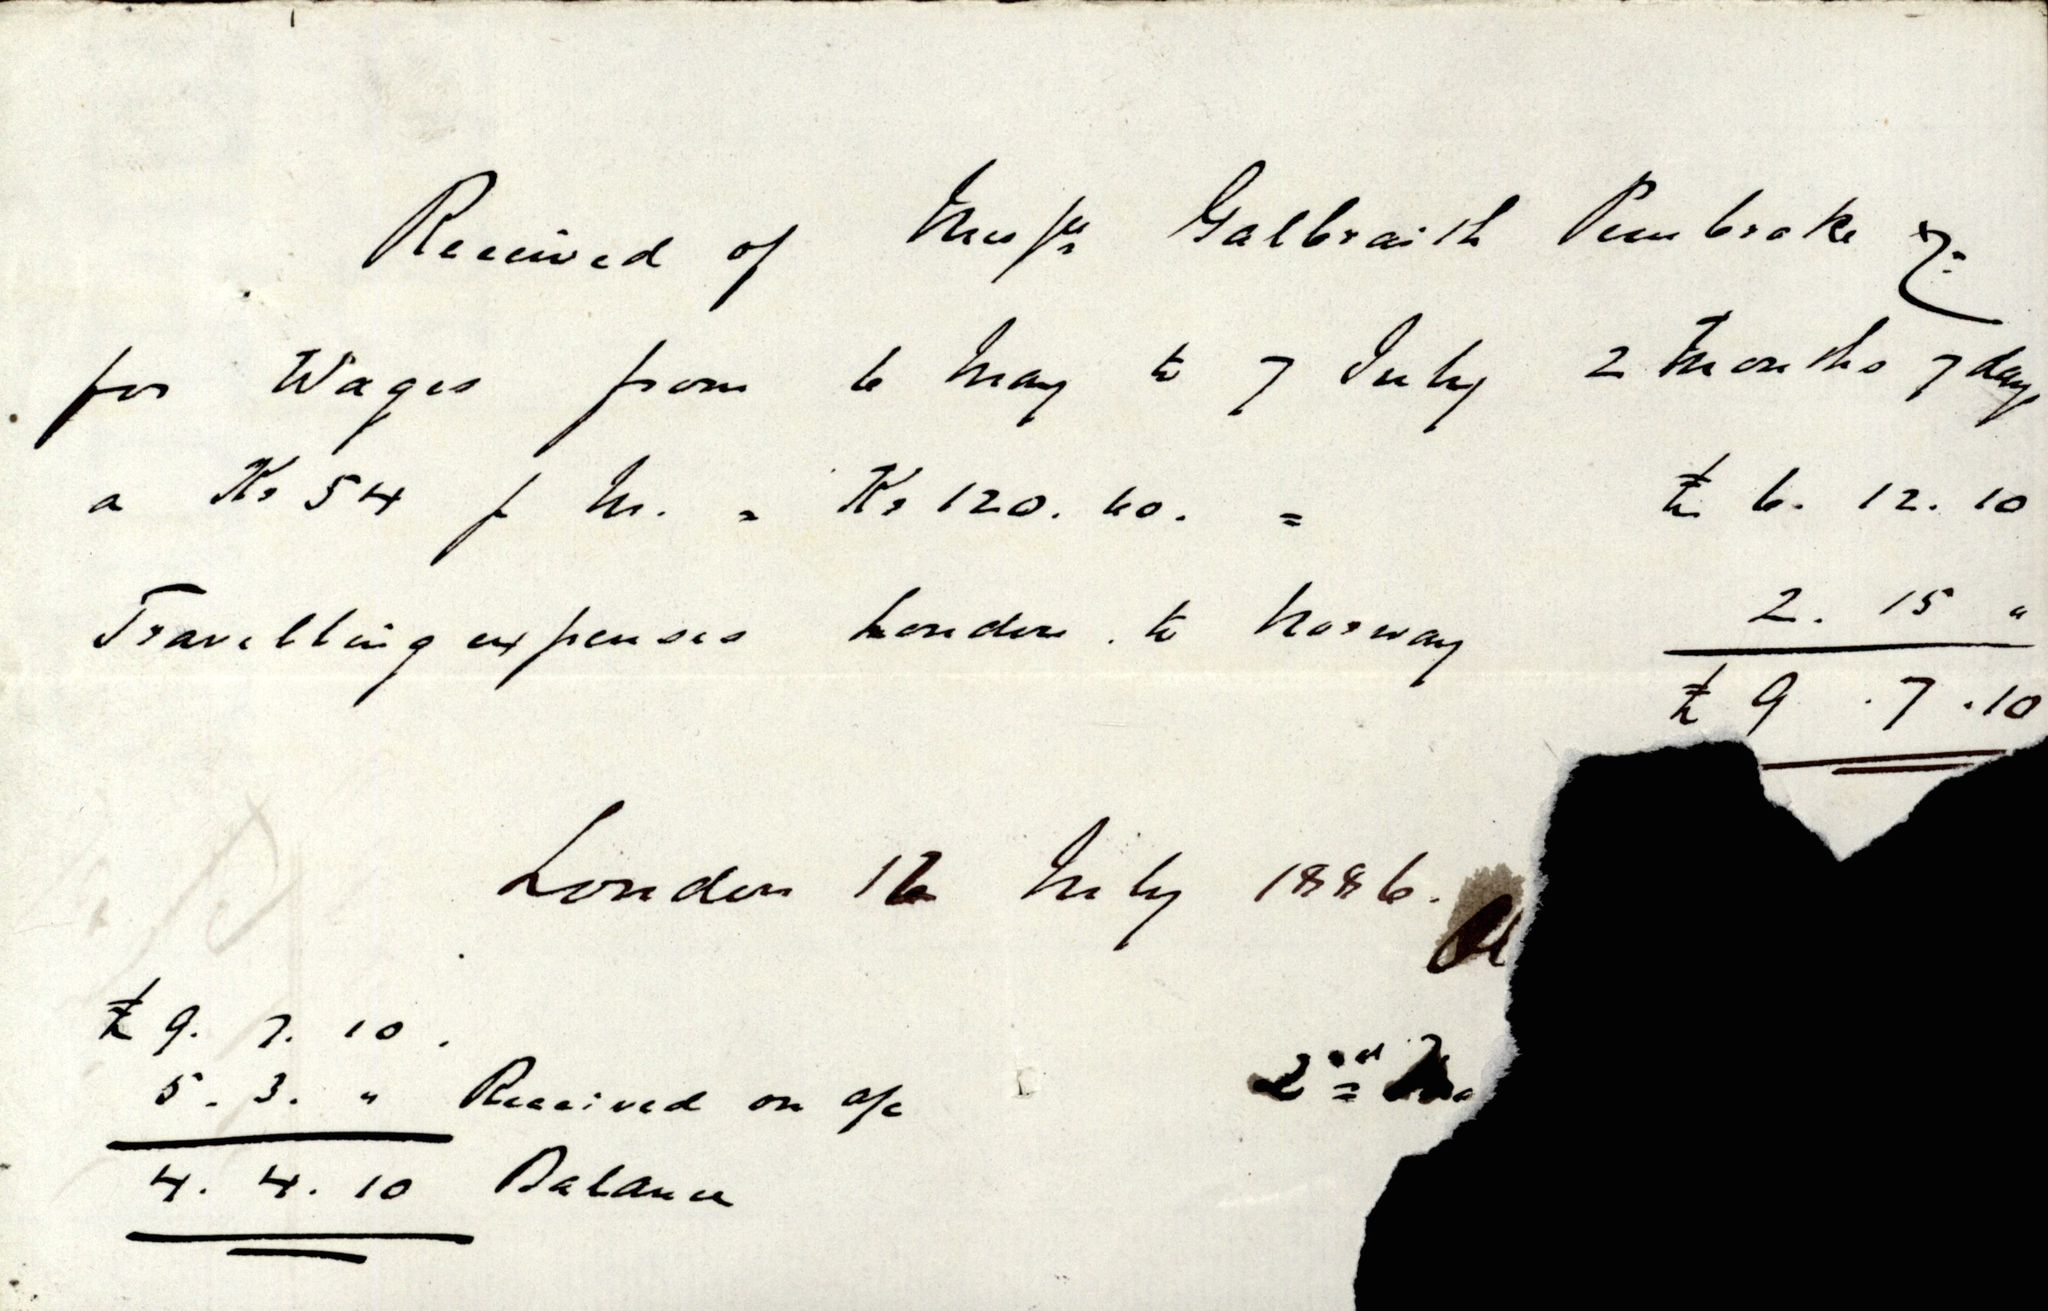 Received of Messrs Galbraith Pembroke &c
for Wages from 6 May to 7 July 2 Months 7 days
a Kr 54 p M. = Kr 120.60. = £ 6. 12. 10
Travelling expenses London to Norway 2. 15 "
£ 9 . 7 . 10
London 12 July 1886.
£ 9. 7. 10.
5. 3. " Received on a/c
2nd
4. 4. 10 Balance